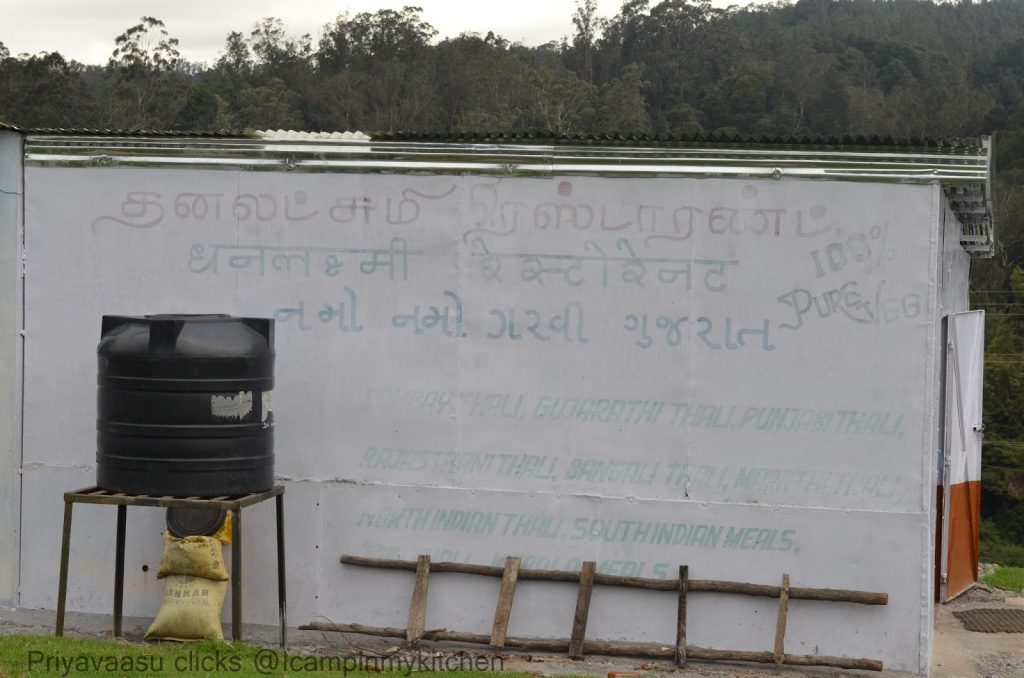 தனலட்சுமி ரெஸ்டாரண்ட்
धनलक्ष्मी रेस्टोरेनट
100%
નમો નમો ગરવી ગુજરાત
PURE VEG
BOMBAY THALI, GUJARATHI THALI, PUNJABI THALI,
RAJASTHANI THALI, BANGOLI THALI,
NORTH INDIAN THALI, SOUTH INDIAN MEALS,
MEALS
SANKAR
Priyavaasu clicks @Icampinmykitchen